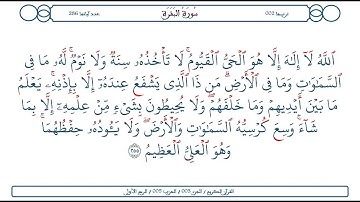 ترتيبها 002
سُورَةُ البَقَرَةِ
عدد آياتها 286
اللَّهُ لَآ إِلَٰهَ إِلَّا هُوَ الْحَىُّ الْقَيُّومُ ۚ لَا تَأْخُذُهُۥ سِنَةٌ وَلَا نَوْمٌ ۚ لَّهُۥ مَا فِى
السَّمَٰوَٰتِ وَمَا فِى الْأَرْضِ ۗ مَن ذَا الَّذِى يَشْفَعُ عِندَهُۥٓ إِلَّا بِإِذْنِهِۦ ۚ يَعْلَمُ
مَا بَيْنَ أَيْدِيهِمْ وَمَا خَلْفَهُمْ ۖ وَلَا يُحِيطُونَ بِشَىْءٍ مِّنْ عِلْمِهِۦٓ إِلَّا بِمَا
شَآءَ ۚ وَسِعَ كُرْسِيُّهُ السَّمَٰوَٰتِ وَالْأَرْضَ ۖ وَلَا يَـُٔودُهُۥ حِفْظُهُمَا ۚ
وَهُوَ الْعَلِىُّ الْعَظِيمُ ٢٥٥
القرآن الكريم / الجزء 003 / الحزب 005 / الربع الأول